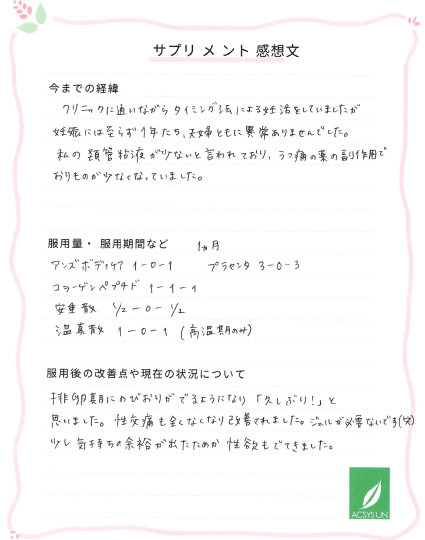 サプリメント感想文
今までの経緯
クリニックに通いながらタイミング法による妊活をしていましたが
妊娠には至らず1年たち、夫婦ともに異常ありませんでした。
私の頸管粘液が少ないと言われており、うつ病の薬の副作用で
おりものが少なくなっていました。
服用量・服用期間など 1ヵ月
アンズボディケア 1-0-1 プラセンタ 3-0-3
コラーゲンペプチド 1-1-1
安重散 1/2-0-1/2
温真散 1-0-1 (高温期のみ)
服用後の改善点や現在の状況について
排卵期にのびおりがでるようになり「久しぶり!」と
思いました。性交痛も全くなくなり改善されました。ジェルが必要ないです(笑)
少し気持ちの余裕が出たためか性欲もでてきました。
ACSYS UN